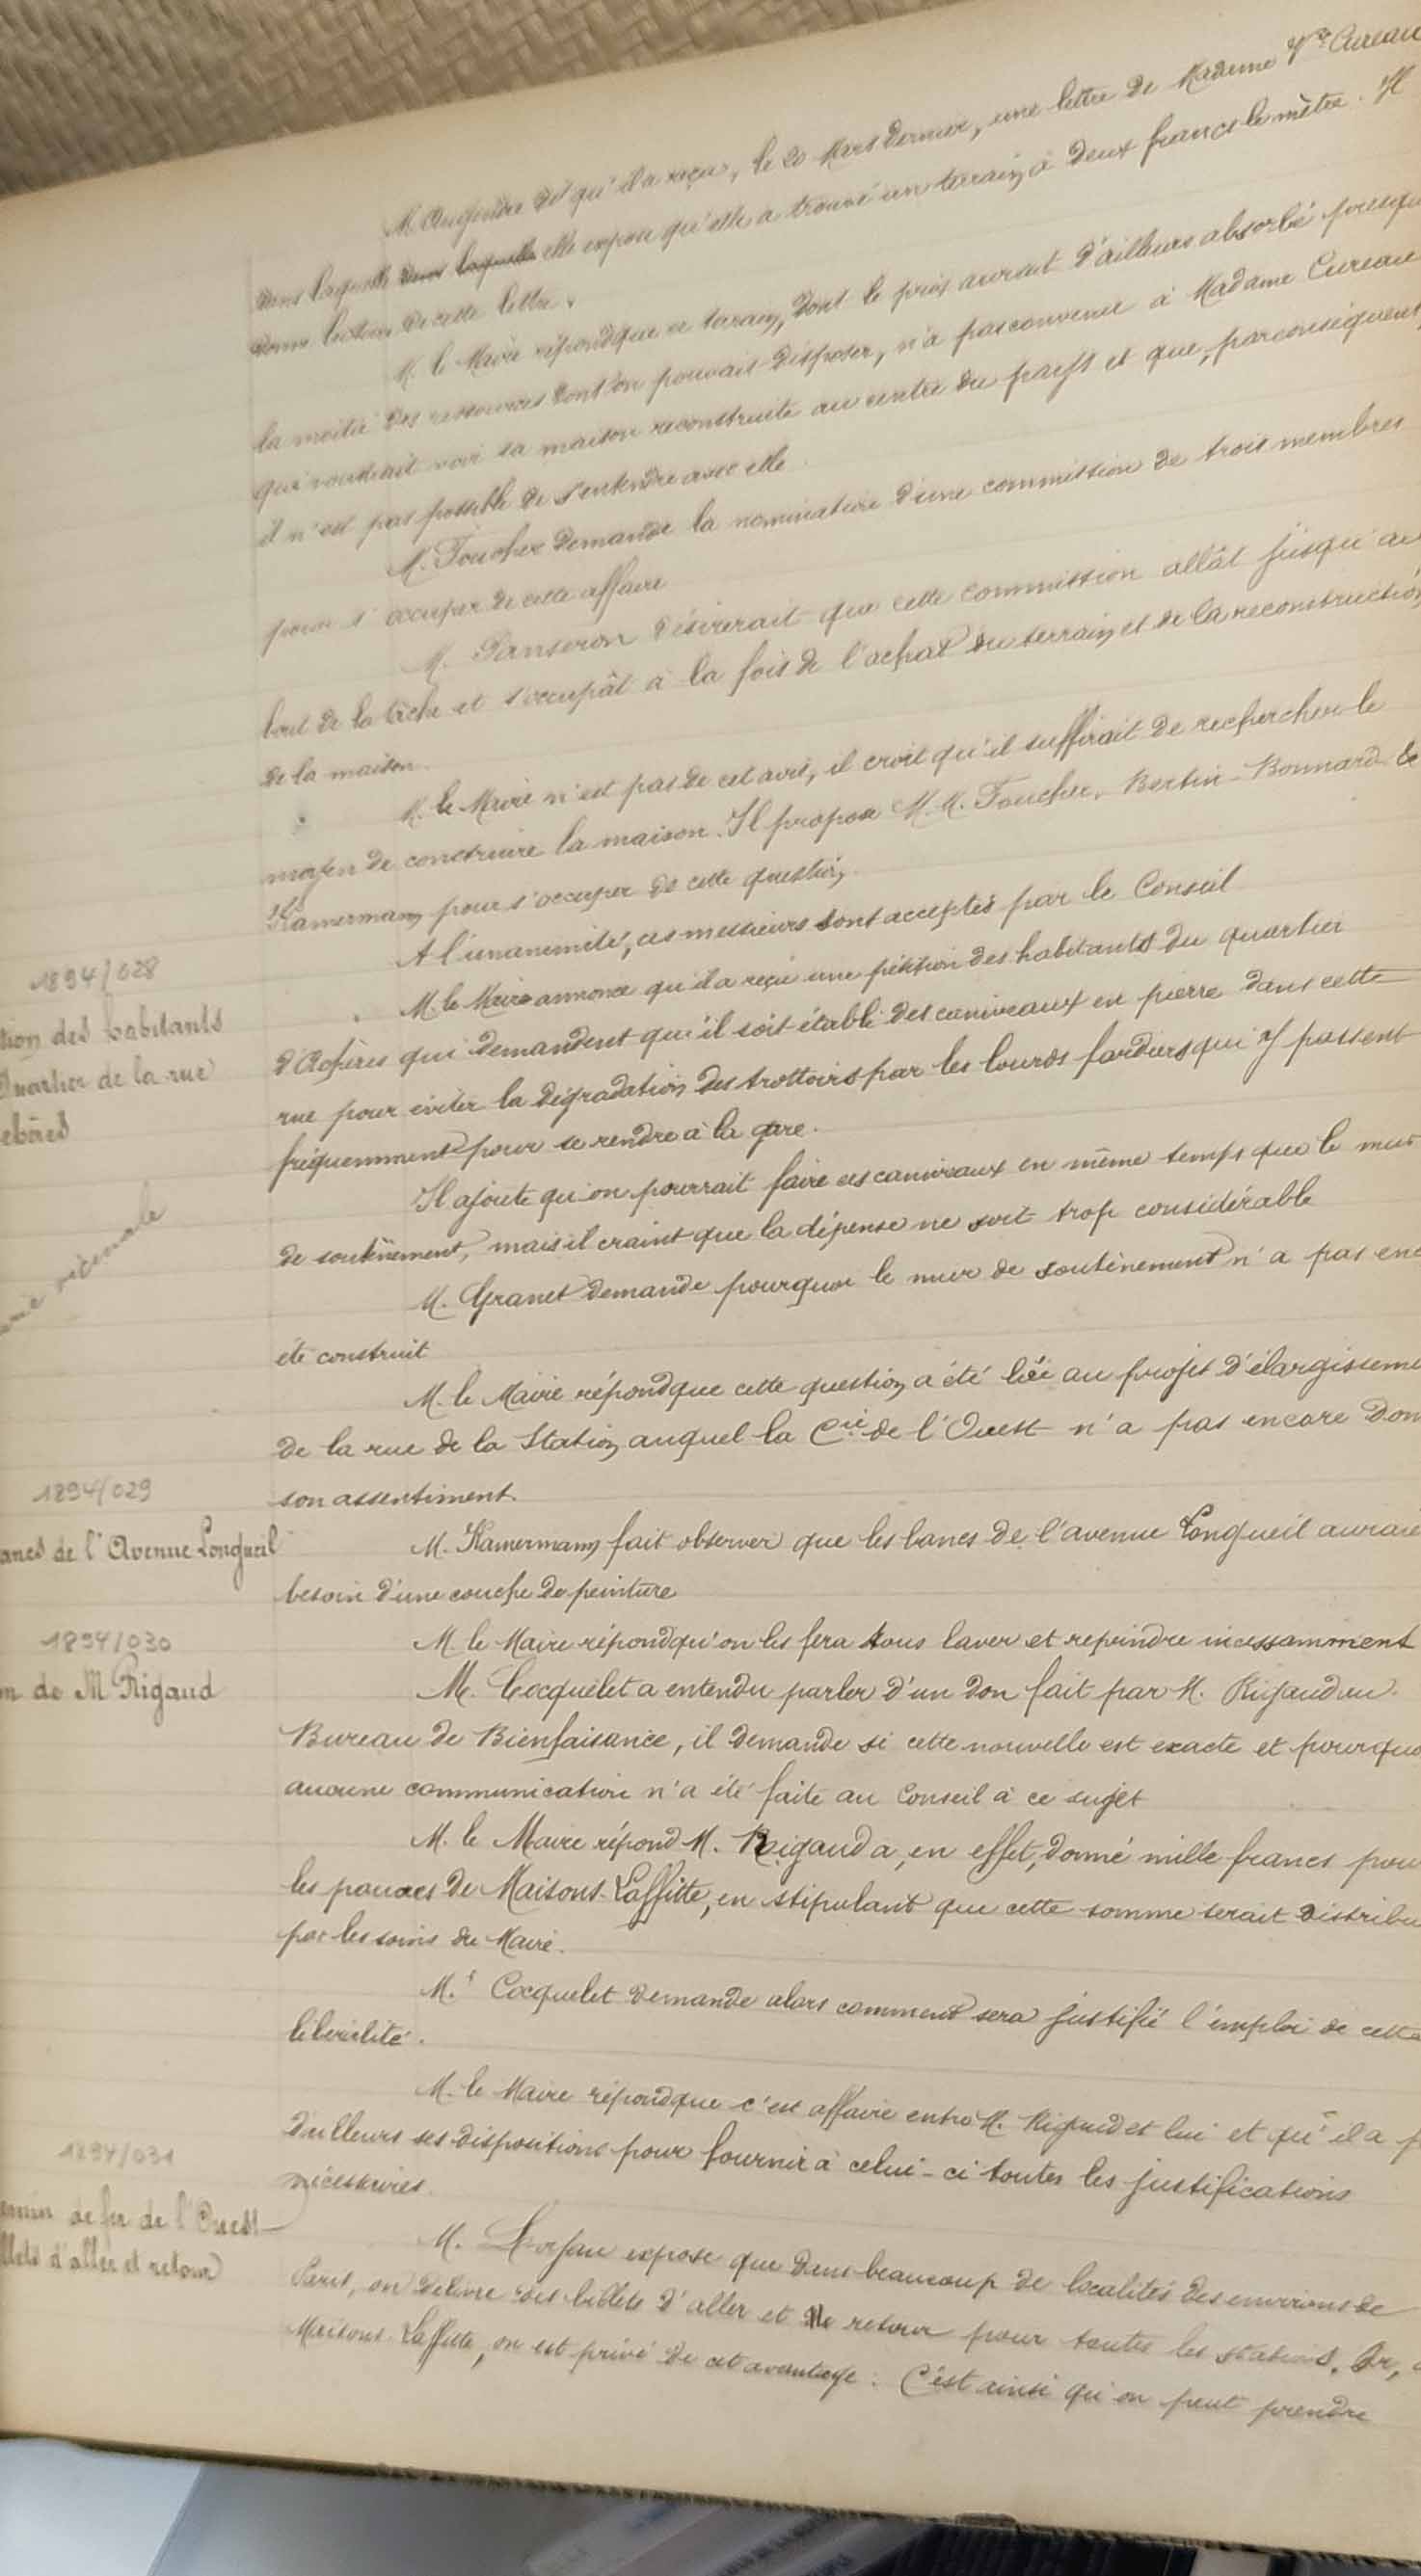 M. Augendre dit qu'il a reçu, le 20 Mars dernier, une lettre de Madame Vve Cureau
dans laquelle dans laquelle elle expose qu'elle a trouvé un terrain, à deux francs le mètre. Il
donne lecture de cette lettre.
M. le Maire répond que ce terrain, dont le prix aurait d'ailleurs absorbé presqu
la moitié des ressources dont on pouvait disposer, n'a pas convenu à Madame Cureau
qui voudrait voir sa maison reconstruite au centre du pays et que, par conséquent,
il n'est pas possible de s'entendre avec elle.
M. Foucher demande la nomination d'une commission de trois membres
pour s'occuper de cette affaire
M. Panseron désirerait que cette commission allât jusqu'au
bout de la tâche et s'occupât à la fois de l'achat du terrain et de la reconstruction
de la maison.
M. le Maire n'est pas de cet avis, il croit qu'il suffirait de rechercher le
moyen de construire la maison. Il propose M.M. Foucher, Bertin-Bonnard &
Kamermann pour s'occuper de cette question.
A l'unanimité, ces messieurs sont acceptés par le Conseil
1894/028
tion des habitants
Quartier de la rue
chères
M. le Maire annonce qu'il a reçu une pétition des habitants du quartier
d'Achères qui demandent qu'il soit établi des caniveaux en pierre dans cette
rue pour éviter la dégradation des trottoirs par les lourds fardiers qui y passent
fréquemment pour se rendre à la gare.
Il ajoute qu'on pourrait faire ces caniveaux en même temps que le mur
de soutènement, mais il craint que la dépense ne soit trop considérable
M. Granet demande pourquoi le mur de soutènement n'a pas enc
été construit
M. le Maire répond que cette question a été liée au projet d'élargisseme
de la rue de la Station auquel la Cie de l'Ouest n'a pas encore don
son assentiment.
1894/029
ancs de l'Avenue Longueil
M. Kamermann fait observer que les bancs de l'avenue Longueil auraie
besoin d'une couche de peinture
M. le Maire répond qu'on les fera tous laver et repeindre incessamment
1894/030
n de M Rigaud
M. Cocquelet a entendu parler d'un don fait par M. Rigaud au
Bureau de Bienfaisance, il demande si cette nouvelle est exacte et pourquo
aucune communication n'a été faite au Conseil à ce sujet
M. le Maire répond M. Rigaud a, en effet, donné mille francs pou
les pauvres de Maisons-Laffitte, en stipulant que cette somme serait distribu
par les soins du Maire.
M. Cocquelet demande alors comment sera justifié l'emploi de cette
libéralité.
M. le Maire répond que c'est affaire entre M. Rigaud et lui et qu'il a p
d'ailleurs ses dispositions pour fournir à celui-ci toutes les justifications
nécessaires.
1894/031
emin de fer de l'Ouest
llets d'aller et retour
M. expose que dans beaucoup de localités des environs de
Paris, on délivre des billets d'aller et de retour pour toutes les stations. Or, à
Maisons-Laffitte, on est privé de cet avantage : C'est ainsi qu'on peut prendre